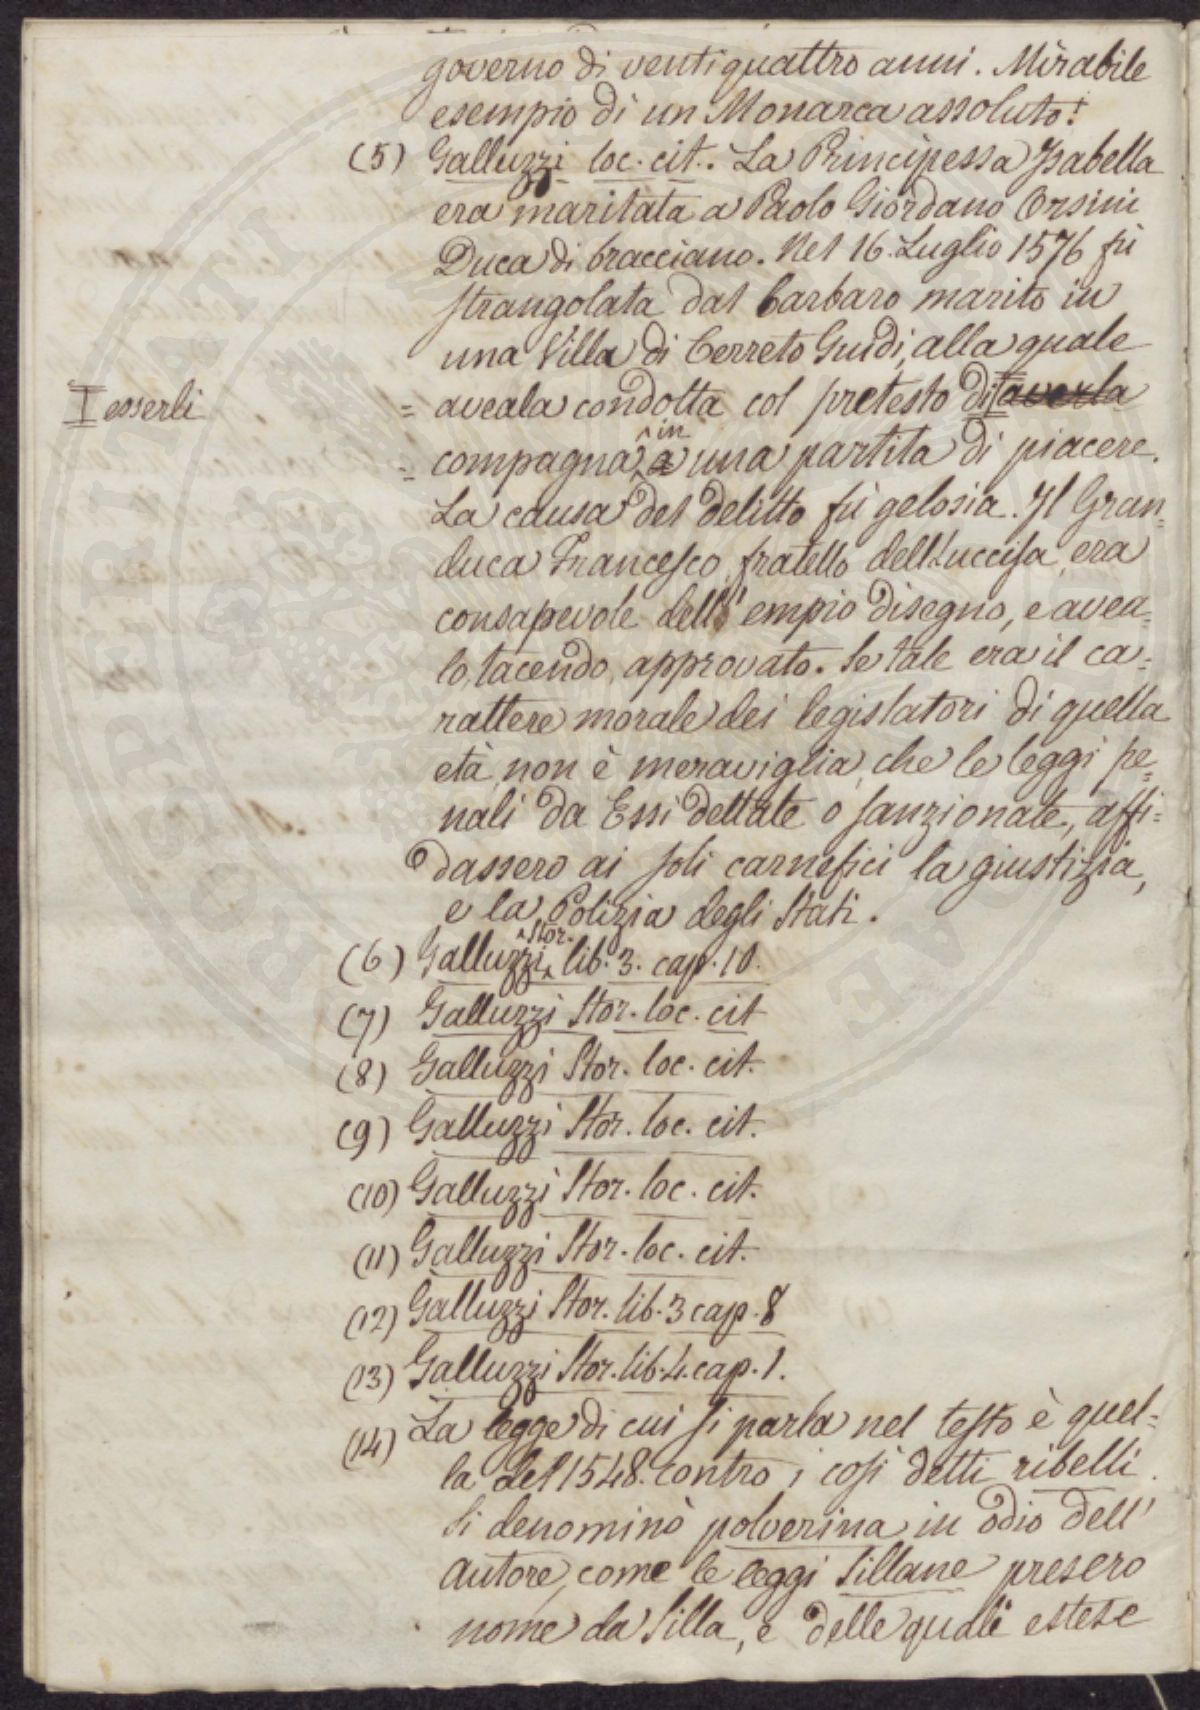 governo di ventiquattro anni. Mirabile
esempio di un Monarca assoluto!
(5) Galluzzi loc. cit. La Principessa Isabella
era maritata a Paolo Giordano Orsini
Duca di bracciano. Nel 16. Luglio 1576 fù
strangolata dal barbaro marito in
una Villa di Cerreto Guidi, alla quale
I esserli
= aveala condotta col pretesto di averla
in
= compagna, a una partita di piacere.
La causa del delitto fù gelosia. Il Gran=
duca Francesco, fratello dell'uccisa, era
consapevole dell' empio disegno, e avea=
lo, tacendo, approvato. Se tale era il ca=
rattere morale dei legislatori di quella
età, non è meraviglia, che le leggi pe=
nali da Essi dettate o sanzionate, affi=
dassero ai soli carnefici la giustizia,
e la Polizia degli Stati.
Stor.
(6) Galluzzi, lib. 3. cap. 10.
(7) Galluzzi Stor. loc. cit
(8) Galluzzi Stor. loc. cit.
(9) Galluzzi Stor. loc. cit.
(10) Galluzzi Stor. loc. cit.
(11) Galluzzi Stor. loc. cit.
(12) Galluzzi Stor. lib. 3 cap. 8
(13) Galluzzi Stor. lib. 4. cap. 1.
(14) La legge di cui si parla nel testo è quel=
la del 1548. contro i così detti ribelli.
Si denominò polverina in odio dell'
autore, come le leggi Sillane presero
nome da Silla, e delle quali estese
PROSPERITATI